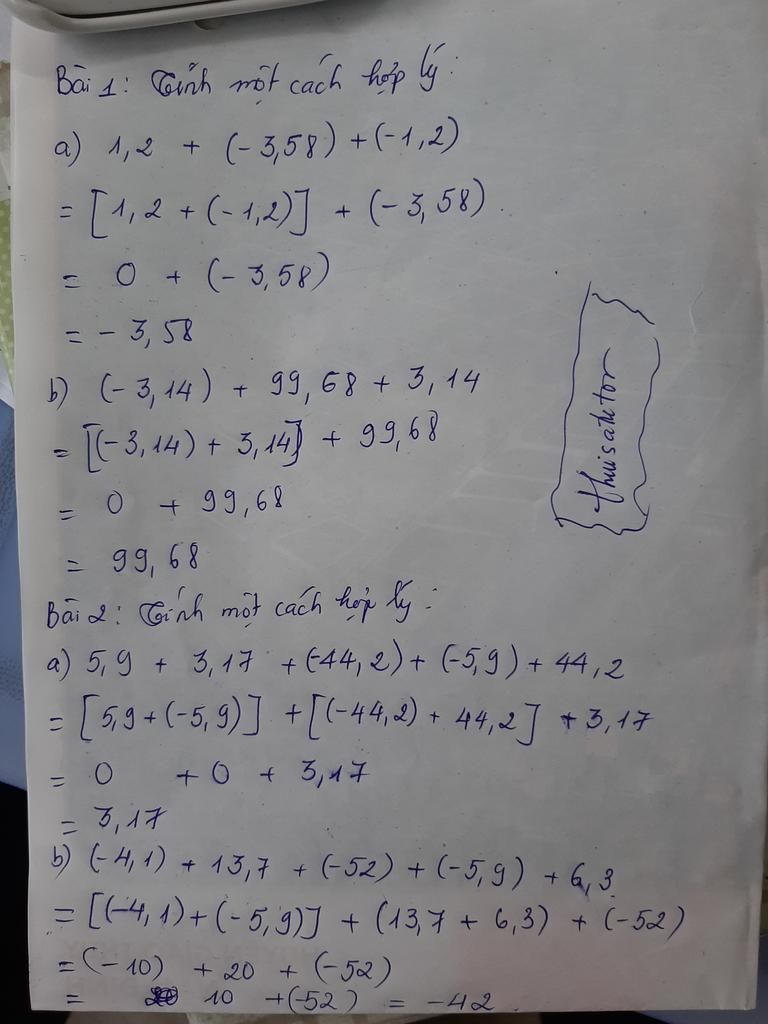 Bài 1: Tính một cách hợp lý:
a) 1,2 + (-3,58) + (-1,2)
= [1,2 + (-1,2)] + (-3,58).
= 0 + (-3,58)
= -3,58
b) (-3,14) + 99,68 + 3,14
= [(-3,14) + 3,14] + 99,68
= 0 + 99,68
= 99,68
Bài 2: Tính một cách hợp lý:
a) 5,9 + 3,17 + (-44,2) + (-5,9) + 44,2
= [5,9 + (-5,9)] + [(-44,2) + 44,2] + 3,17
= 0 + 0 + 3,17
= 3,17
b) (-4,1) + 13,7 + (-52) + (-5,9) + 6,3
= [(-4,1) + (-5,9)] + (13,7 + 6,3) + (-52)
= (-10) + 20 + (-52)
= 10 + (-52) = -42